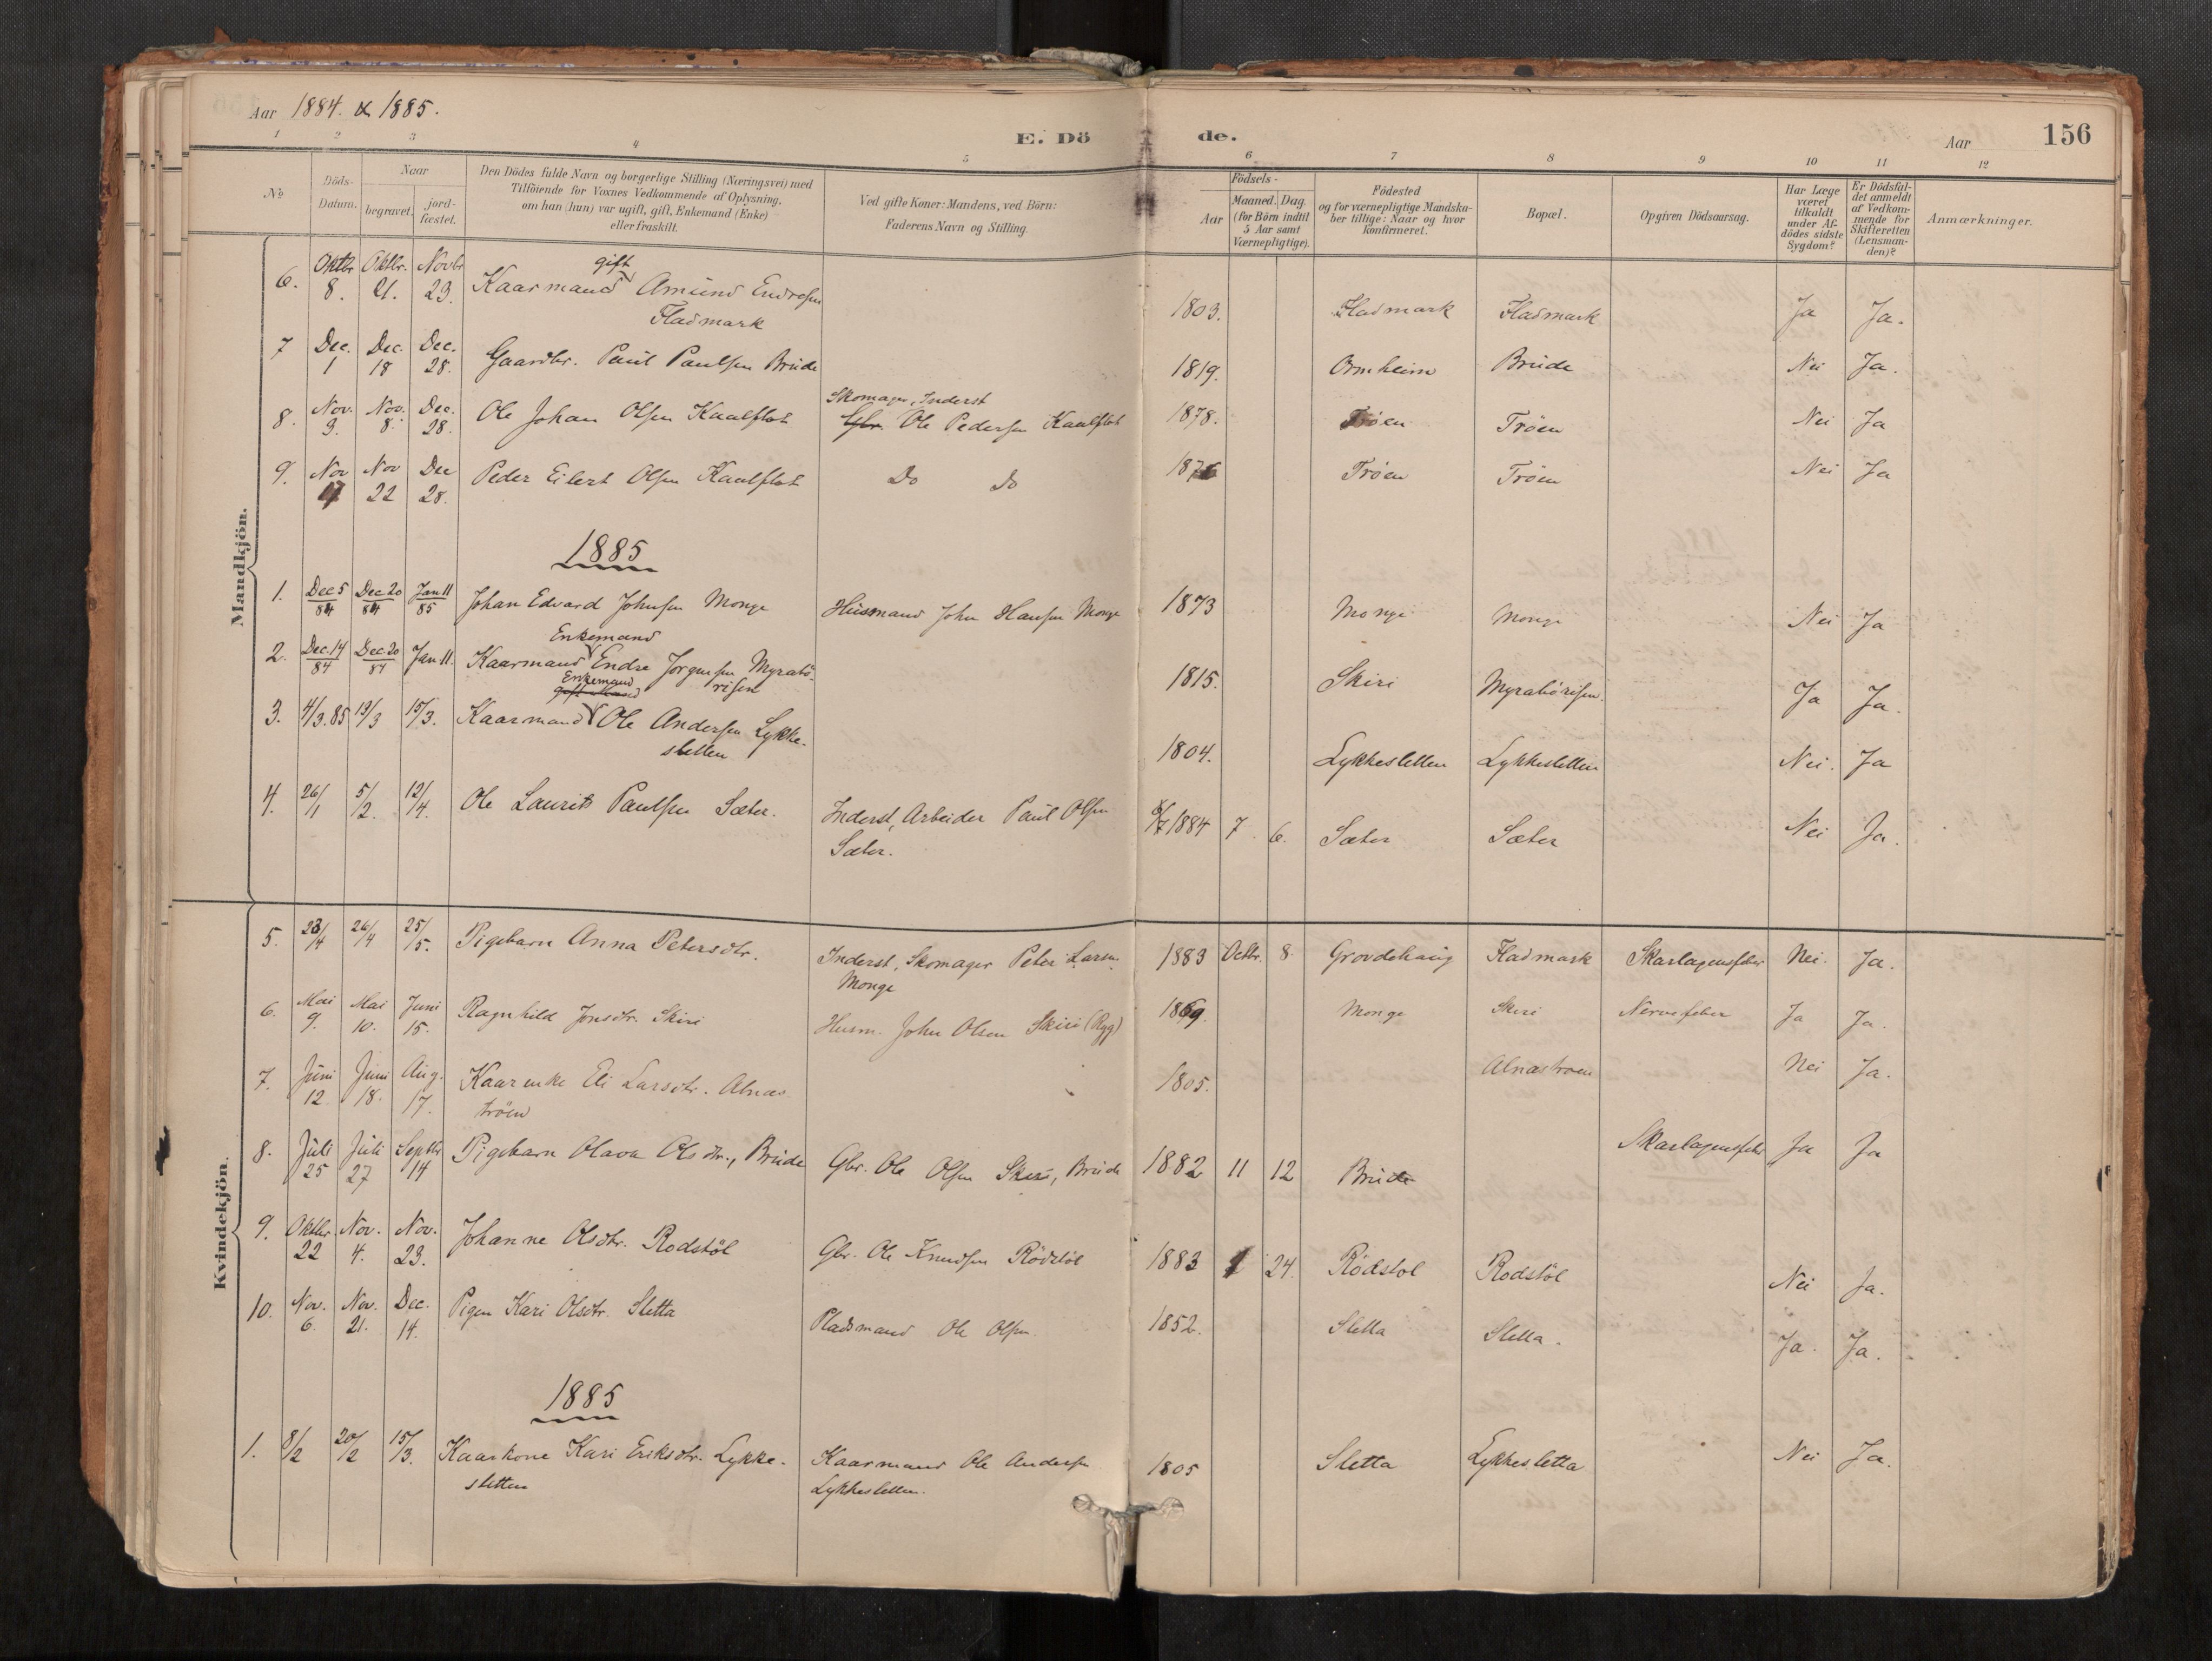 Aar 1884. & 1885.
E. Dö de.
Aar
156
1 2 3 4 5 6 7 8 9 10 11 12
No
Döds-Datum.
Naar
begravet.
jord-fæstet.
Den Dödes fulde Navn og borgerlige Stilling (Næringsvei) med
Tilföiende for Voxnes Vedkommende af Oplysning,
om han (hun) var ugift, gift, Enkemand (Enke)
eller fraskilt.
Ved gifte Koner: Mandens, ved Börn:
Faderens Navn og Stilling.
Födsels-
Aar
Maaned. Dag.
(for Börn indtil
5 Aar samt
Værnepligtige).
Födested
og for værnepligtige Mandska-
ber tillige: Naar og hvor
konfirmeret.
Bopæl.
Opgiven Dödsaarsag.
Har Læge
været
tilkaldt
under Af-
dödes sidste
Sygdom?
Er Dödsfal-
det anmeldt
af Vedkom-
mende for
Skifteretten
(Lensman-
den)?
Anmærkninger.
Mandkjön.
6. Oktbr 8. Oktbr. 21. Novbr 23. Kaarmand gift Amund Endresen
Fladmark 1803. Fladmark Fladmark Ja Ja.
7 Dec. 1 Dec. 18 Dec. 28. Gaardbr. Paul Paulsen Brude 1819. Ormheim Brude Nei Ja.
8. Nov. 3. Nov. 8. Dec. 28. Ole Johan Olsen Kaalflot Skomager, Inderst
Gbr. Ole Pedersen Kaalflot 1878. Tröen Tröen Nei Ja
9. Nov 17 Nov 22 Dec 28. Peder Eilert Olsen Kaalflot Do Do 1876 Tröen Tröen Nei Ja
1885
1. Dec 5 84 Dec 20 84 Jan 11 85 Johan Edvard Johnsen Monge Husmand John Hansen Monge 1873 Monge Monge Nei Ja
2. Dec. 14 84 Dec 20 84 Jan 11. Kaarmand Enkemand Endre Jørgensen Myrabö-
risen 1815. Skiri Myrabörisen. Ja Ja.
3. 4/3.85 13/3 15/3. Kaarmand Enkemand Ole Andersen Lykke-
sletten 1804. Lykkesletten Lykkesletten Nei. Ja
4. 26/1 5/2. 12/4. Ole Laurits Paulsen Sæter. Inderst, Arbeider Paul Olsen
Sæter. 6/7 1884 7 6. Sæter Sæter Nei Ja.
Kvindekjön.
5. 23/4 26/4 25/5. Pigebarn Anna Petersdtr. Inderst, Skomager Peter Larsen
Monge 1883 Octbr. 8. Grovdehaug Fladmark Skarlagensfeber Nei. Ja.
6. Mai 9. Mai 10. Juni 15. Ragnhild Jonsdtr. Skiri Husm. John Olsen Skiri (Ryg) 1869. Monge Skiri Nervefeber Ja Ja.
7. Juni 12. Juni 18. Aug. 17. Kaarenke Eli Larsdtr. Alnæs
tröen 1805. Alnæstroen Nei Ja.
8. Juli 25 Juli 27 Septbr 14 Pigebarn Olava Olsdtr., Brude Gbr. Ole Olsen Skiri, Brude 1882 11 12 Brude Skarlagensfeber Ja Ja
9. Oktbr. 22 Nov. 4. Nov. 23. Johanne Olsdtr. Rodstöl Gbr. Ole Knudsen Rödstöl 1883 1 24. Rödstol Rodstöl Nei Ja.
10. Nov. 6. Nov. 21. Dec. 14. Pigen Kari Olsdtr. Sletta Pladsmand Ole Olsen. 1852. Sletta Sletta. Ja. Ja.
1885
1. 8/2 20/2 15/3. Kaarkone Kari Eriksdtr. Lykke-
sletten Kaarmand Ole Andersen
Lykkesletten. 1805 Sletta Lykkesletta Nei Ja.